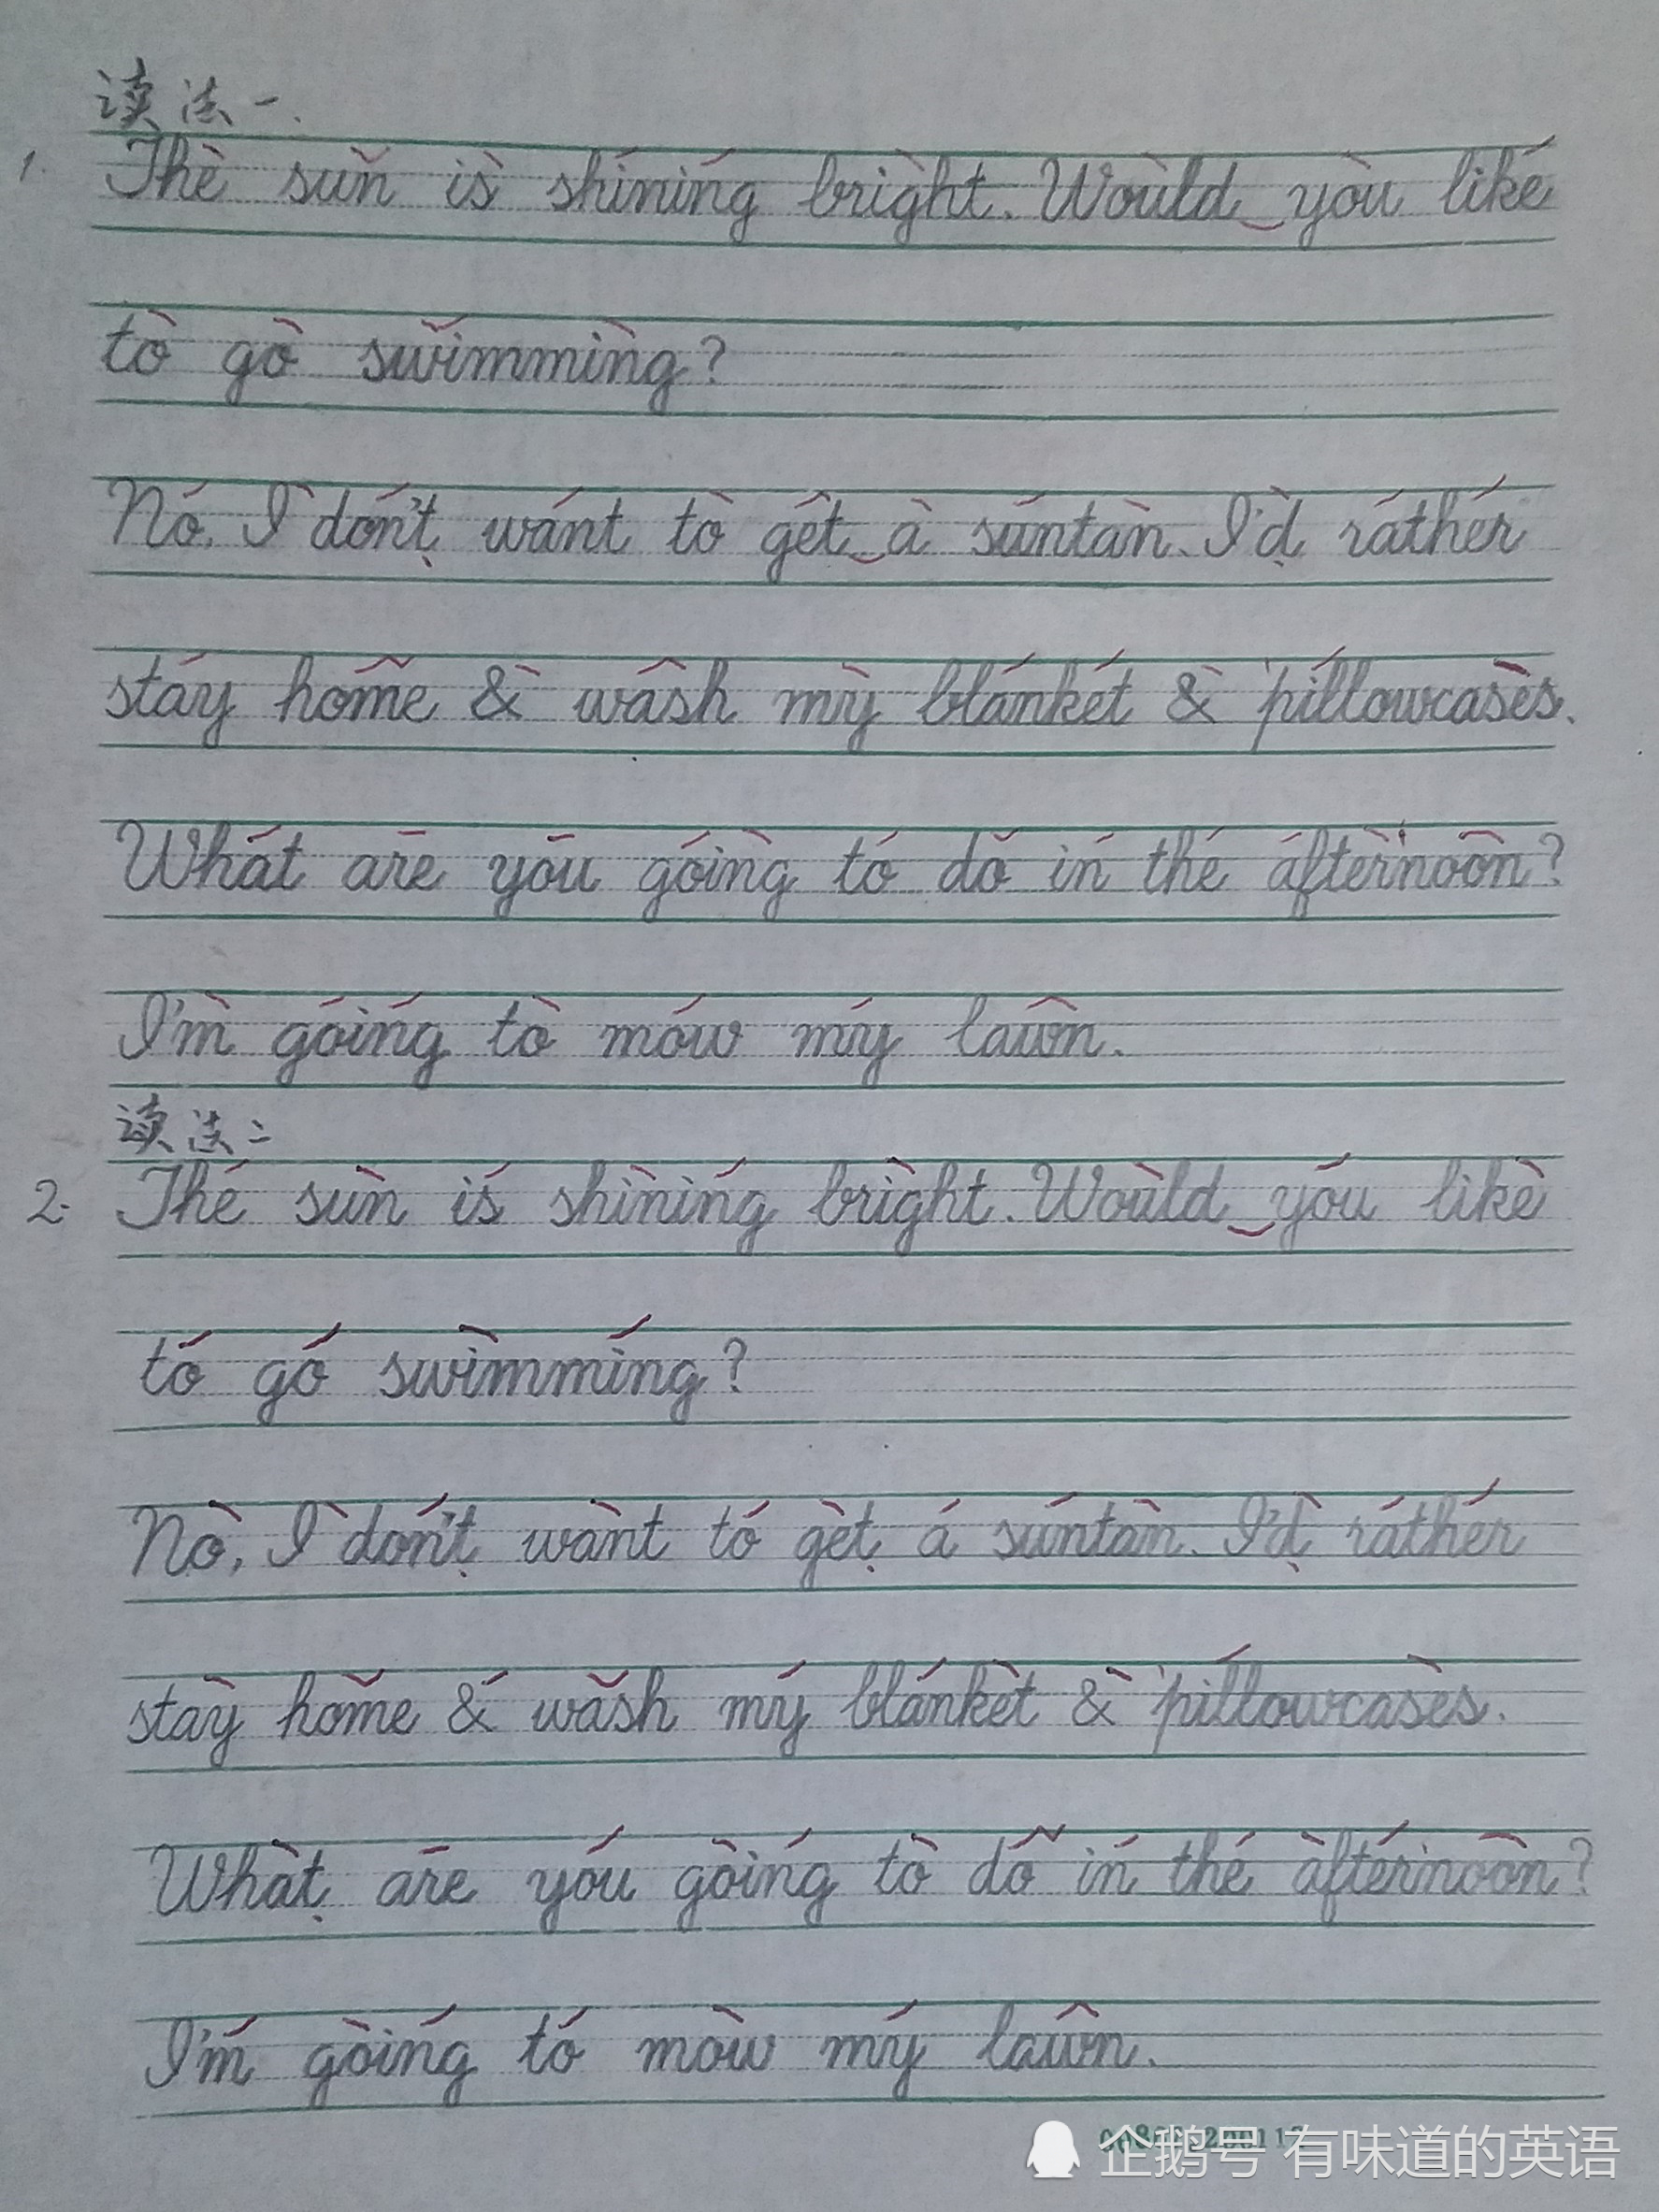 读法一.
1. The sun is shining bright. Would you like
to go swimming?
No, I don't want to get a suntan. I'd rather
stay home & wash my blanket & 'pillowcases.
What are you going to do in the after'noon?
I'm going to mow my lawn.
读法二
2. The sun is shining bright. Would you like
to go swimming?
No, I don't want to get a suntan. I'd rather
stay home & wash my blanket & 'pillowcases.
What are you going to do in the after'noon?
I'm going to mow my lawn.
企鹅号 有味道的英语